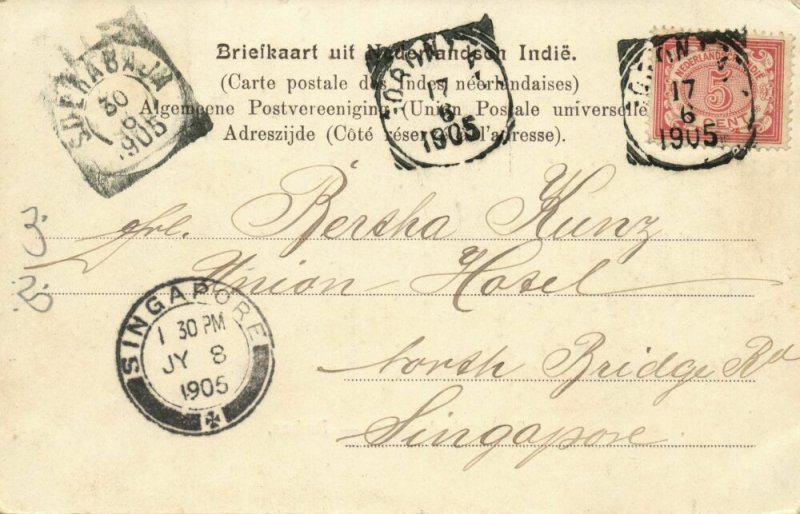 Briefkaart uit Nederlandsch Indië.
(Carte postale des Indes néerlandaises)
Algemeene Postvereeniging (Union Postale universelle
Adreszijde (Côté réservé à l'adresse).
SOERABAJA
30
6
1905
17
6
1905
NEDERLANDSCH INDIË
5
CENT
17
6
1905
Frl. Bertha Kunz
Union Hotel
North Bridge Rd
Singapore
SINGAPORE
1 30 PM
JY 8
1905